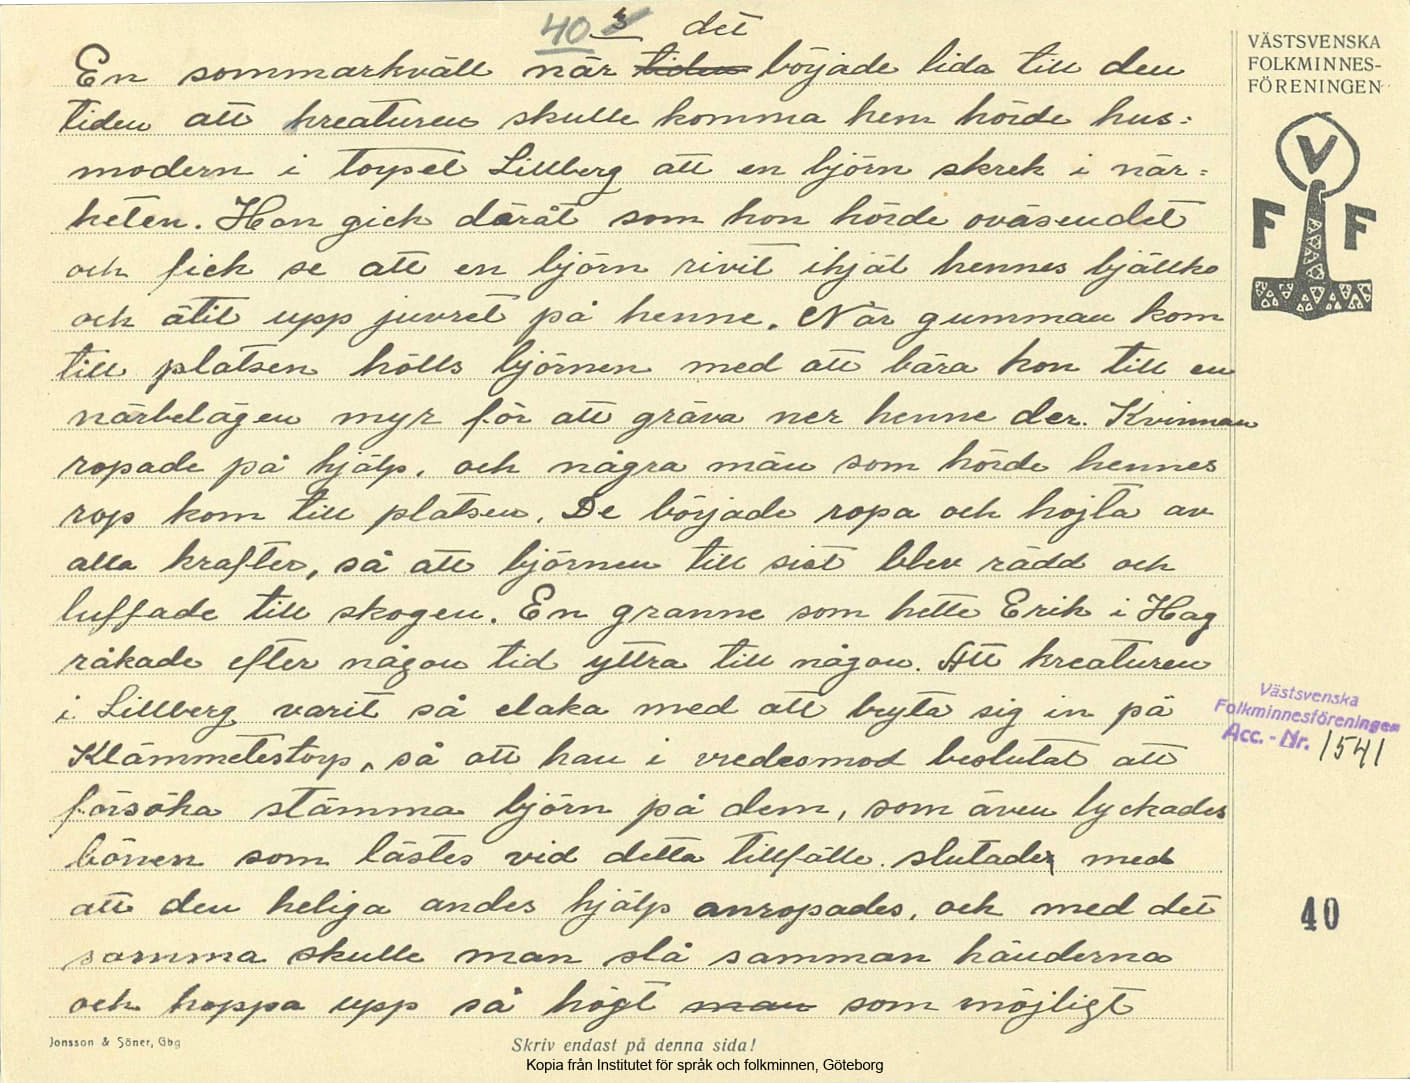 40 3 det
En sommarkväll när tiden började lida till den
tiden att kreaturen skulle komma hem hörde hus=
modern i torpet Lillberg att en björn skrek i när=
heten. Hon gick däråt som hon hörde oväsendet
och fick se att en björn rivit ihjäl hennes bjällko
och ätit upp juvret på henne. När gumman kom
till platsen hölls björnen med att bära kon till en
närbelägen myr för att gräva ner henne der. Kvinnan
ropade på hjälp, och några män som hörde hennes
rop kom till platsen. De började ropa och hojta av
alla krafter, så att björnen till sist blev rädd och
luffade till skogen. En granne som hette Erik i Hag
råkade efter någon tid yttra till någon. Att kreaturen
i Lillberg varit så elaka med att bryta sig in på
Klämmetestorp, så att han i vredesmod beslutat att
försöka stämma björn på dem, som även lyckades
bönen som lästes vid detta tillfälle slutades med
att den heliga andes hjälp anropades, och med det
samma skulle man slå samman händerna
och hoppa upp så högt man som möjligt
Jonsson & Söner, Gbg
Skriv endast på denna sida!
Kopia från Institutet för språk och folkminnen, Göteborg
VÄSTSVENSKA
FOLKMINNES-
FÖRENINGEN
V
F F
Västsvenska
Folkminnesföreningen
Acc. - Nr. 1541
40